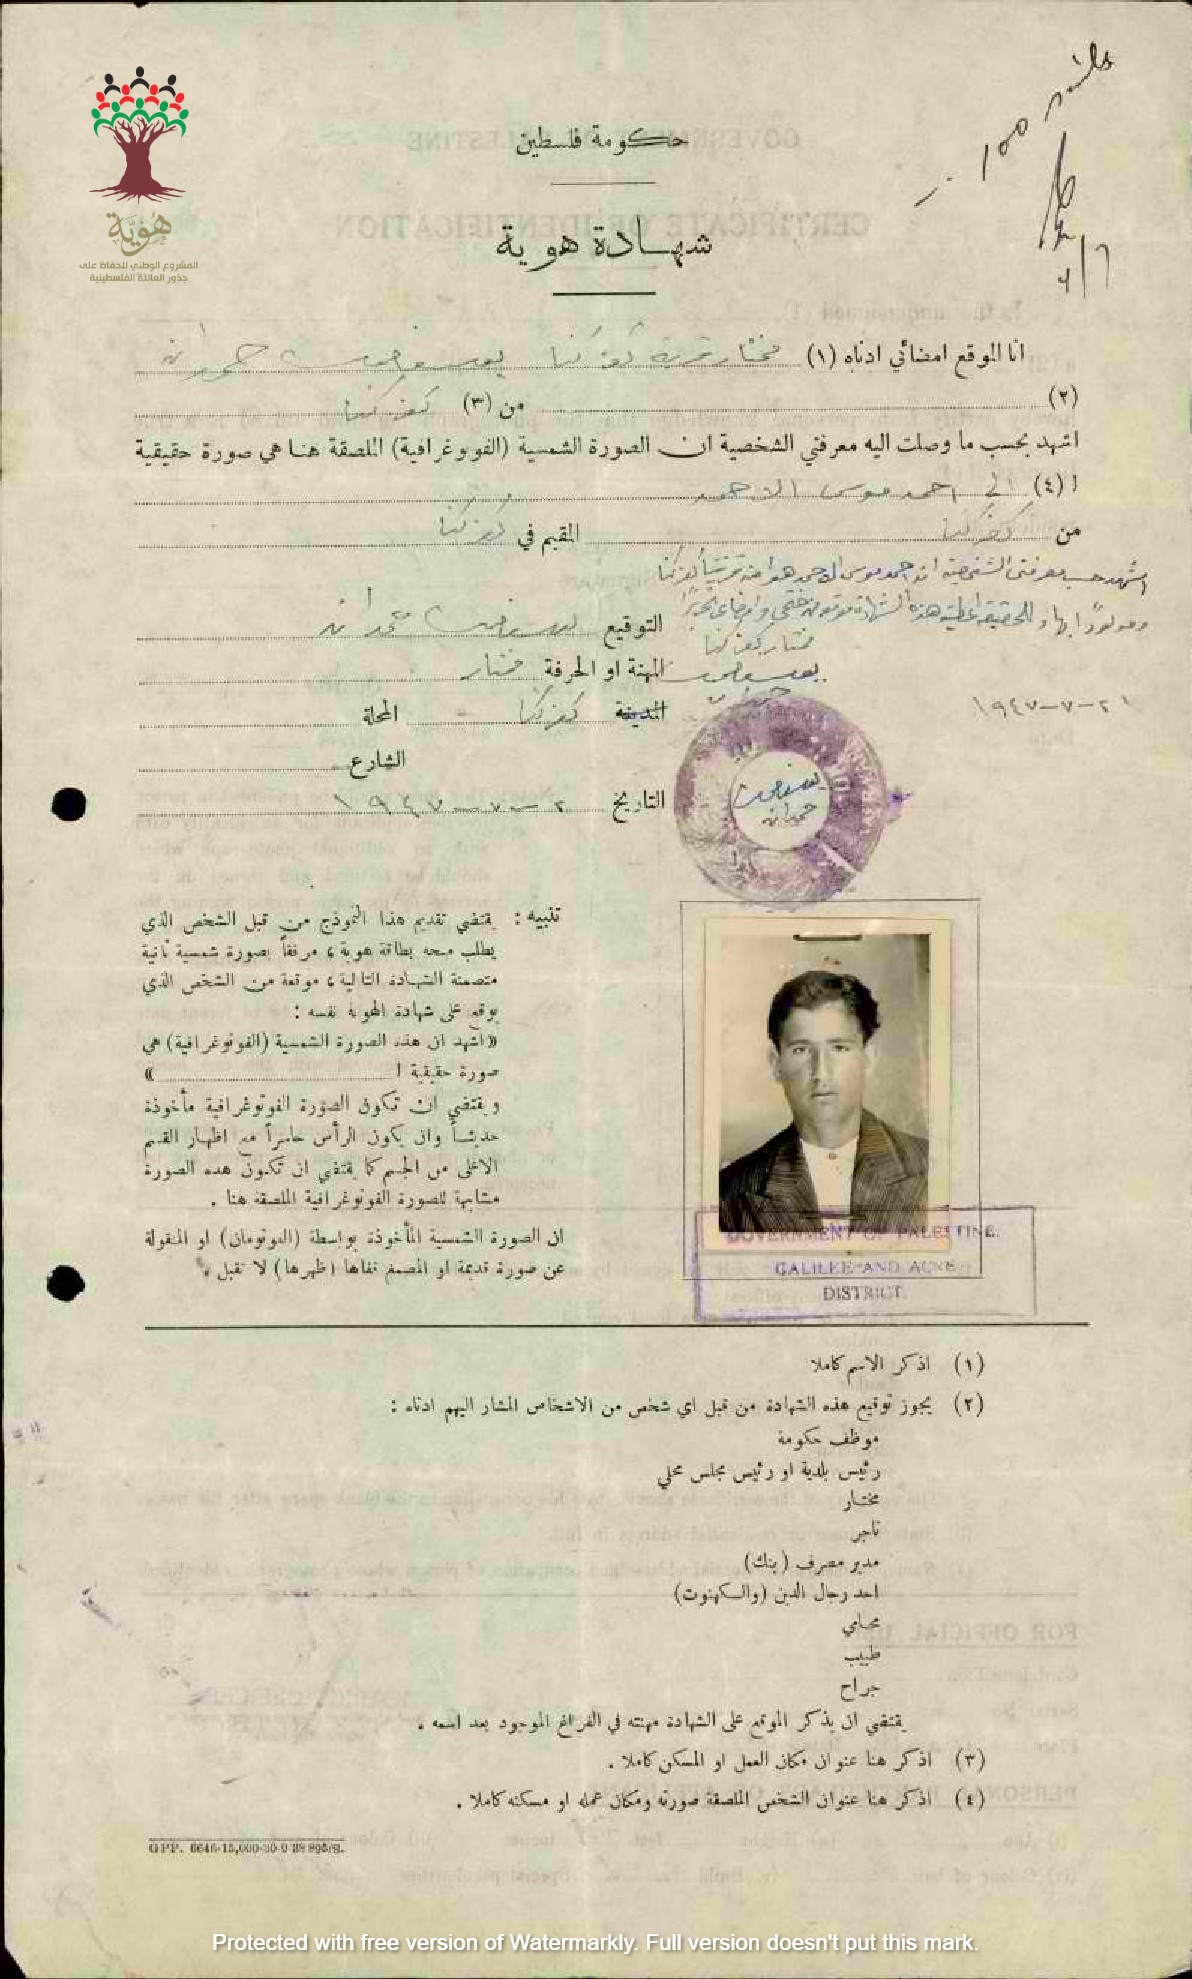 هُويّة
المشروع الوطني للحفاظ على
جذور العائلة الفلسطينية
حكومة فلسطين
شهادة هوية
انا الموقع امضائي ادناه (١) مختار قرية كفركنا يوسف حمدان
(٢) من (٣) كفركنا
اشهد بحسب ما وصلت اليه معرفتي الشخصية ان الصورة الشمسية (الفوتوغرافية) الملصقة هنا هي صورة حقيقية
ا (٤) الى احمد موسى الاحمد
من كفركنا المقيم في كفركنا
اشهد حسب معرفتي الشخصية ان احمد موسى الاحمد هو من كفركنا
ومولودًا بها وللحقيقة اعطيته هذه الشهادة
مختار كفركنا
التوقيع يوسف حمدان
المهنة او الحرفة مختار
المدينة كفركنا المحلة
٢١-٧-١٩٤٧
الشارع
التاريخ ٢-٧-١٩٤٧
يوسف
حمدان
تنبيه : يقتضي تقديم هذا النموذج من قبل الشخص الذي
يطلب منحه بطاقة هوية ، مرفقاً بصورة شمسية ثانية
متضمنة الشهادة التالية ، موقعة من الشخص الذي
يوقع على شهادة الهوية نفسه :
«اشهد ان هذه الصورة الشمسية (الفوتوغرافية) هي
صورة حقيقية ا »
ويقتضي ان تكون الصورة الفوتوغرافية مأخوذة
حديثاً وان يكون الرأس حاسراً مع اظهار القسم
الاعلى من الجسم كما يقتضي ان تكون هذه الصورة
مشابهة للصورة الفوتوغرافية الملصقة هنا .
ان الصورة الشمسية المأخوذة بواسطة (الفوتومان) او المنقولة
عن صورة قديمة او المصمغ قفاها (ظهرها) لا تقبل .
GOVERNMENT OF PALESTINE.
GALILEE AND ACRE
DISTRICT.
(١) اذكر الاسم كاملا
(٢) يجوز توقيع هذه الشهادة من قبل اي شخص من الاشخاص المشار اليهم ادناه :
موظف حكومة
رئيس بلدية او رئيس مجلس محلي
مختار
تاجر
مدير مصرف (بنك)
احد رجال الدين (والكهنوت)
محامي
طبيب
جراح
يقتضي ان يذكر الموقع على الشهادة مهنته في الفراغ الموجود بعد اسمه .
(٣) اذكر هنا عنوان مكان العمل او المسكن كاملا .
(٤) اذكر هنا عنوان الشخص الملصقة صورته ومكان عمله او مسكنه كاملا .
GPP. 6646-15,000-30-9-38 895/S.
Protected with free version of Watermarkly. Full version doesn't put this mark.